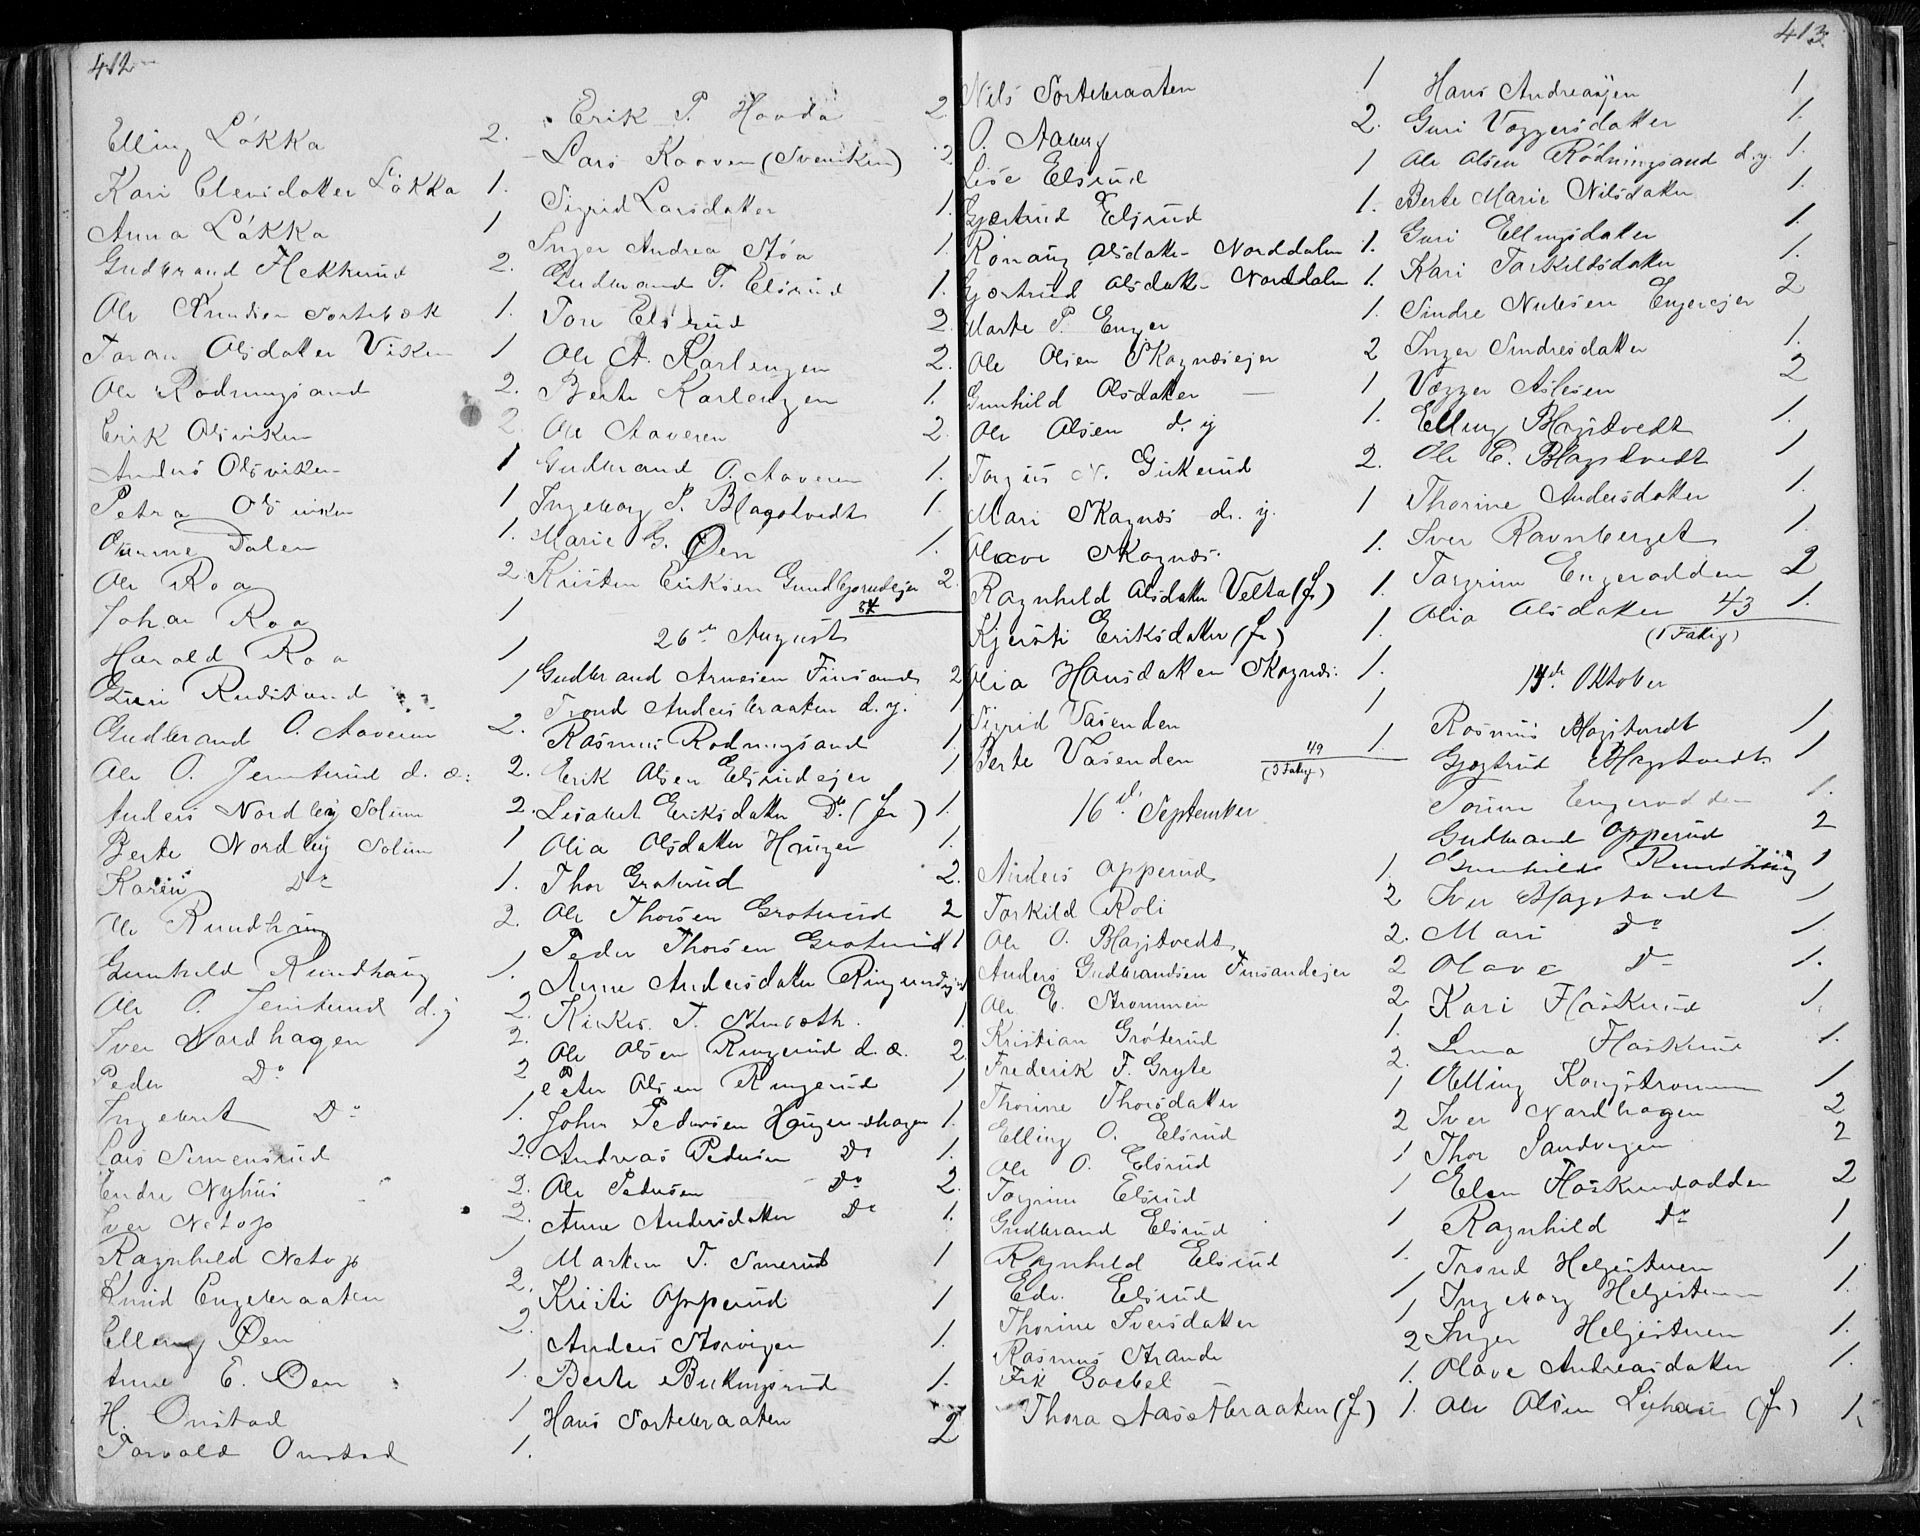 412
Elling Løkka 2.
Kari Elensdatter Løkka 1.
Anna Løkka 1
Gudbrand Flekkeud 2.
Ole Knudsen Sortebæk 1.
Taran Olsdatter Viken 1
Ole Rødningsand 2.
Erik Olsviken 2
Anders Olsviken 1
Petra Olsviken 1
Dalen 1.
Ole Roa 2
Johan Roa 1
Harald Roa 1
Guri Rudstand 1
Gudbrand O. Aaveren 2.
Ole O. Jemterud d. æ. 2.
Anders Nordby Solum 2.
Berte Nordby Solum 1
Karen Do 1.
Ole Rundhaug 2.
Gunhild Rundhaug 1.
Ole O. Jemterud d. y 2.
Iver Nordhagen 2.
Peder Do 2
Ingebret Do 1.
Lars Simensrud 2.
Endre Nyhus 2.
Iver Netop 2.
Ragnhild Netop 1
Knud Engebraaten 2.
Elling Øen 2.
Anne E. Øen 1.
H. Onstad 1
Torvald Onstad 1.
Erik P. Hovda 2
Lars Kaaven (Sveniken) 2
Sigrid Larsdatter 1.
Inger Andrea Støa 1.
Gudbrand T. Elsrud 1.
Tore Elsrud 2.
Ole A. Karlengen 2.
Berte Karlengen 1.
Ole Aaveren 2.
Gudbrand O. Aaveren 1.
Ingeborg P. Blagstvedt 1.
Marie G. Øen 1.
Kristen Eriksen Gundbjørudejer 2.
84
26de August
Gudbrand Arnesen Finsand 2
Trond Andersbraaten d. y. 1
Rasmus Rødningsand 1.
Erik Olsen Elsrudejer 1
Lisabet Eriksdatter Do (Fr) 1.
Olia Olsdatter Haugen 1.
Thor Grøterud 2.
Ole Thorsen Grøterud 2
Peder Thorsen Grøterud 1
Anne Andersdatter Ringerudejer 1
T. 1
Ole Olsen Ringerud d. æ. 2
Peter Olsen Ringerud 1
John Pedersen Haugerudhagen 1.
Andreas Pedersen Do 1.
Ole Pedersen Do 2.
Anne Andersdatter Do 1.
Marken T. Smerud 1
Kristi Opperud 1
Anders Storvigen 1.
Berte Buttingsrud 1.
Hans Sortebraaten 2
413
Nils Sortebraaten 1
O. Aaberg 2.
Lise Elsrud 1
Gjertrud Elsrud 1.
Rønaug Olsdatter Norddalen 1.
Gjertrud Olsdatter Norddalen 1.
Marte P. Enger 1.
Ole Olsen Skagnæsejer 2
Gunhild Olsdatter — 1
Ole Olsen d. y 1.
Torgius N. Girkerud 2.
Mari Skagnæs d. y. 1
Olave Skagnæs. 1.
Ragnhild Olsdatter Velta (Fr) 1.
Kjersti Eriksdatter (Fr) 1.
Olia Hansdatter Skagnæs. 1.
Sigrid Vasenden 1
Berte Vasenden 1.
49
(3 Fattig)
16de September
Anders Opperud 1.
Torkild Roli 2
Ole O. Blagstvedt 2.
Anders Gudbrandsen Finsandejer 2
Ole E. Strømmen 2
Kristian Grøterud 1.
Frederik F. Gryte 2.
Thorine Thorsdatter 1
Elling O. Elsrud 2
Ole O. Elsrud 1
Torgrim Elsrud 1
Gudbrand Elsrud 1
Ragnhild Elsrud 1.
Edv. Elsrud 1
Thorine Iversdatter 1
Rasmus Strande 2
Frk Goebel 1.
Thora Aasetbraaten (Fr) 1.
Hans Andreassen 1
Guri Væggersdatter 1.
Ole Olsen Rødningsand d. y. 1.
Berte Marie Nilsdatter 1.
Guri Ellingsdatter 1
Kari Torkildsdatter 1.
Sindre Nubsen Engerejer 2
Inger Sindresdatter 1.
Vægger Aslesen 2
Elling Blagstvedt 1.
Ole E. Blagstvedt 1
Thorine Andersdatter 1.
Iver Ravnberget 1
Torgrim Engerodden 2
Olia Olsdatter 43 1.
(1 Fattig)
14de Oktober
Rasmus Blagstvedt 1
Gjertrud Blagstvedt 1
Torine Engerodden 1.
Gudbrand Opperud 2
Gunhild Rundhaug 1
Iver Blagstvedt 1
Mari Do 1
Olave Do 1.
Kari Flaskerud 1.
Lena Flaskerud 1.
Elling Kongstrømmen 1
Iver Nordhagen 2
Thor Sandvigen 2
Elen Flaskerudodden 2
Ragnhild Do 1
Trond Helgestuen 1
Ingeborg Helgestuen 1.
Inger Helgestuen 1.
Olave Andreasdatter 1.
Ole Olsen (Fr) 1.